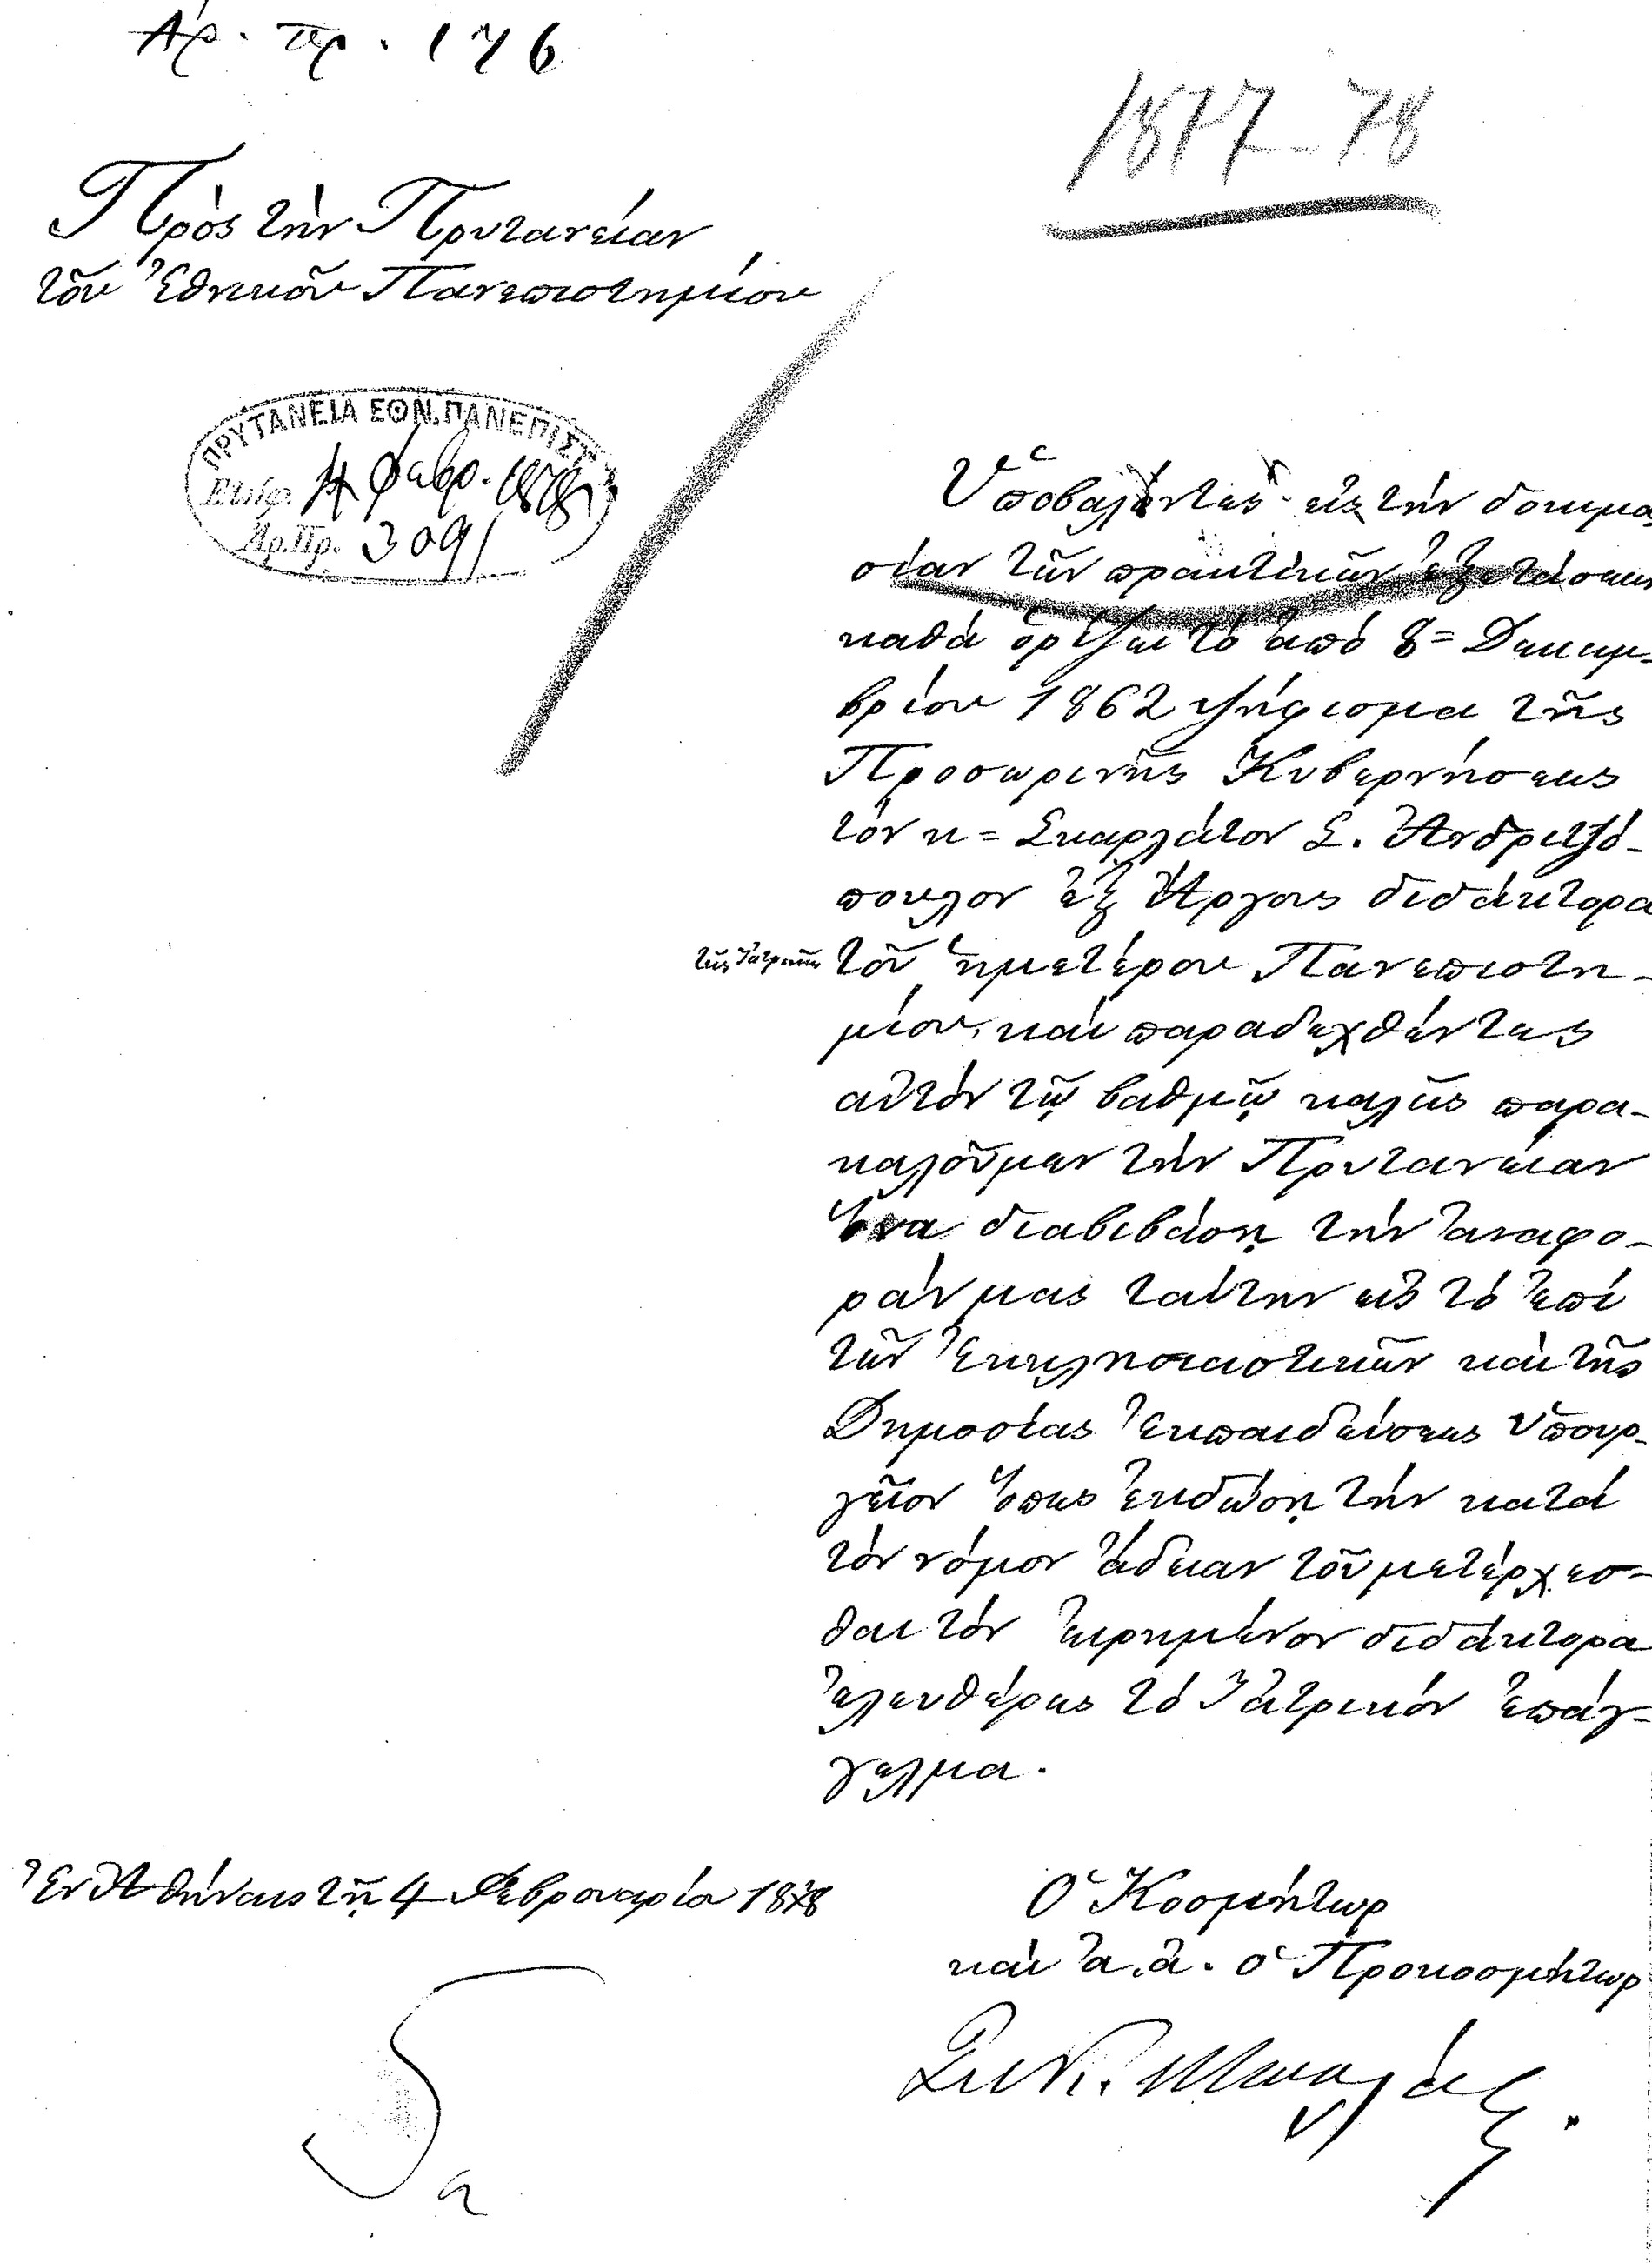 Ἀρ. πρ. 176
1877-78
Πρὸς τὴν Πρυτανείαν
τοῦ Ἐθνικοῦ Πανεπιστημίου
ΠΡΥΤΑΝΕΙΑ ΕΘΝ. ΠΑΝΕΠΙΣΤ.
Εἰσήχ. 4 Φεβρ. 1878
Ἀρ. Πρ. 3091
Ὑποβαλόντες εἰς τὴν δοκιμα
σίαν τῶν πρακτικῶν ἐξετάσεων
καθὰ ὁρίζει τὸ ἀπὸ 8 = Δεκεμ-
βρίου 1862 ψήφισμα τῆς
Προσωρινῆς Κυβερνήσεως
τὸν κ = Σκαρλάτον Σ. Ἀνδριτζό-
πουλον ἐξ Ἄργους διδάκτορα
τῆς Ἰατρικῆς τοῦ ἡμετέρου Πανεπιστη-
μίου, καὶ παραδεχθέντες
αὐτὸν τῷ βαθμῷ καλῶς παρα-
καλοῦμεν τὴν Πρυτανείαν
ἵνα διαβιβάσῃ τὴν ἀναφο-
ράν μας ταύτην εἰς τὸ ἐπὶ
τῶν Ἐκκλησιαστικῶν καὶ τῆς
Δημοσίας Ἐκπαιδεύσεως Ὑπουρ-
γεῖον ὅπως ἐκδώσῃ τὴν κατὰ
τὸν νόμον ἄδειαν τοῦ μετέρχεσ-
θαι τὸν εἰρημένον διδάκτορα
ἐλευθέρως τὸ Ἰατρικὸν ἐπάγ-
γελμα.
Ἐν Ἀθήναις τῇ 4 Φεβρουαρίου 1878
Ὁ Κοσμήτωρ
καὶ ἀ. ἀ. ὁ Προκοσμήτωρ